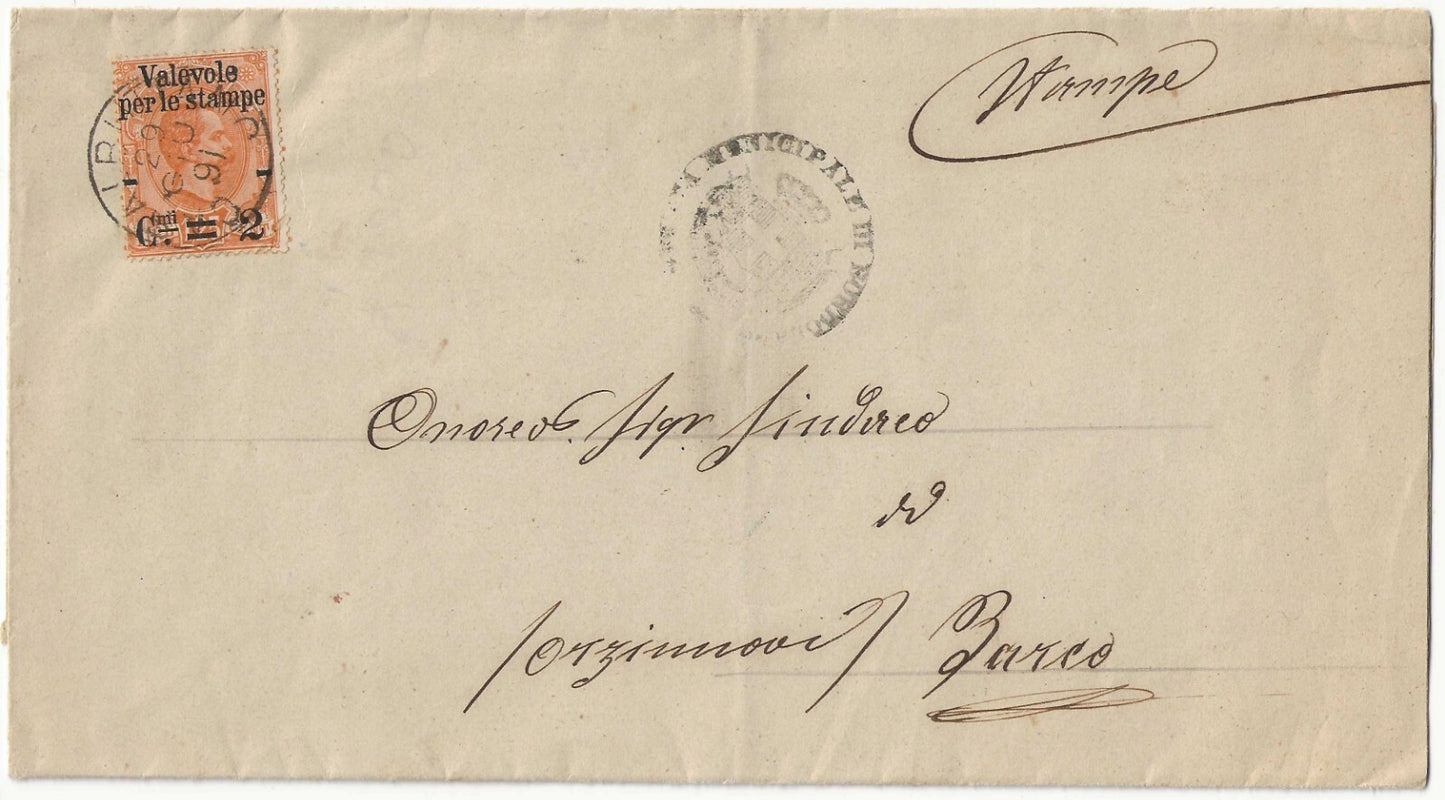 Valevole
per le stampe
C.mi 2
29
91
Stampe
MUNICIPALE DI
Onorevs. Sigr Sindaco
di
(orzinnovi) Barco